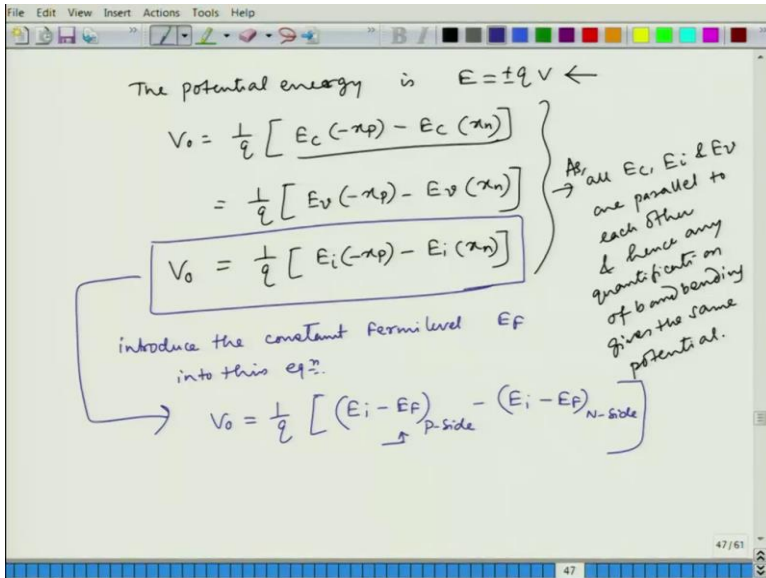 File Edit View Insert Actions Tools Help
The potential energy is E = ±qV ←
V₀ = 1/q [ Ec(-xp) - Ec(xn) ]
= 1/q [ Ev(-xp) - Ev(xn) ]
V₀ = 1/q [ Ei(-xp) - Ei(xn) ]
→ As, all Ec, Ei & Ev
are parallel to
each other
& hence any
quantification
of band bending
gives the same
potential.
introduce the constant Fermi level EF
into this eqⁿ.
V₀ = 1/q [ (Ei - EF)P-side - (Ei - EF)N-side ]
47/61
47